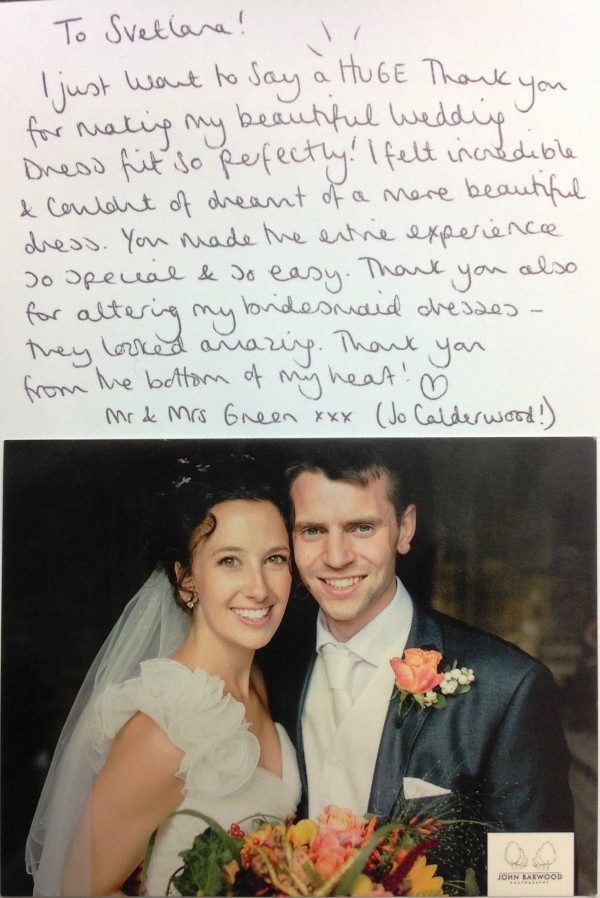 To Svetlana!
I just want to say a HUGE Thank you
for making my beautiful Wedding
Dress fit so perfectly! I felt incredible
& Couldnt of dreamt of a more beautiful
dress. You made the entire experience
so special & so easy. Thank you also
for altering my bridesmaid dresses -
they looked amazing. Thank you
from the bottom of my heart! ♡
Mr & Mrs Green xxx (Jo Calderwood!)
JOHN BARWOOD
PHOTOGRAPHY